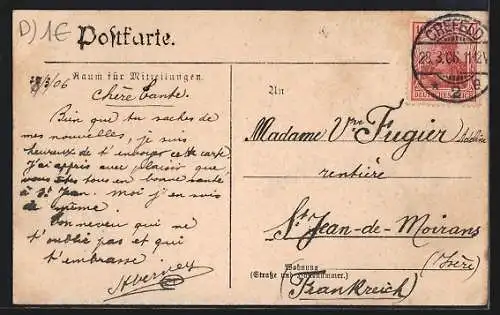 D) 1€
Postkarte.
CREFELD
28.3.06. 11-12V.
* 2 g
28/3/06
Raum für Mitteilungen.
Chère tante.
Bien que tu saches de
mes nouvelles, je suis
heureux de t'envoyer cette carte.
J'ai appris avec plaisir que
vous êtes tous en bonne santé
à St Jean. Moi j'en suis
de même.
Ton neveu qui ne
t'oublie pas et qui
t'embrasse.
An
Madame Vve Fugier
rentière
St Jean-de-Moirans
(Isère)
Wohnung
(Straße und Hausnummer.)
(Frankreich)